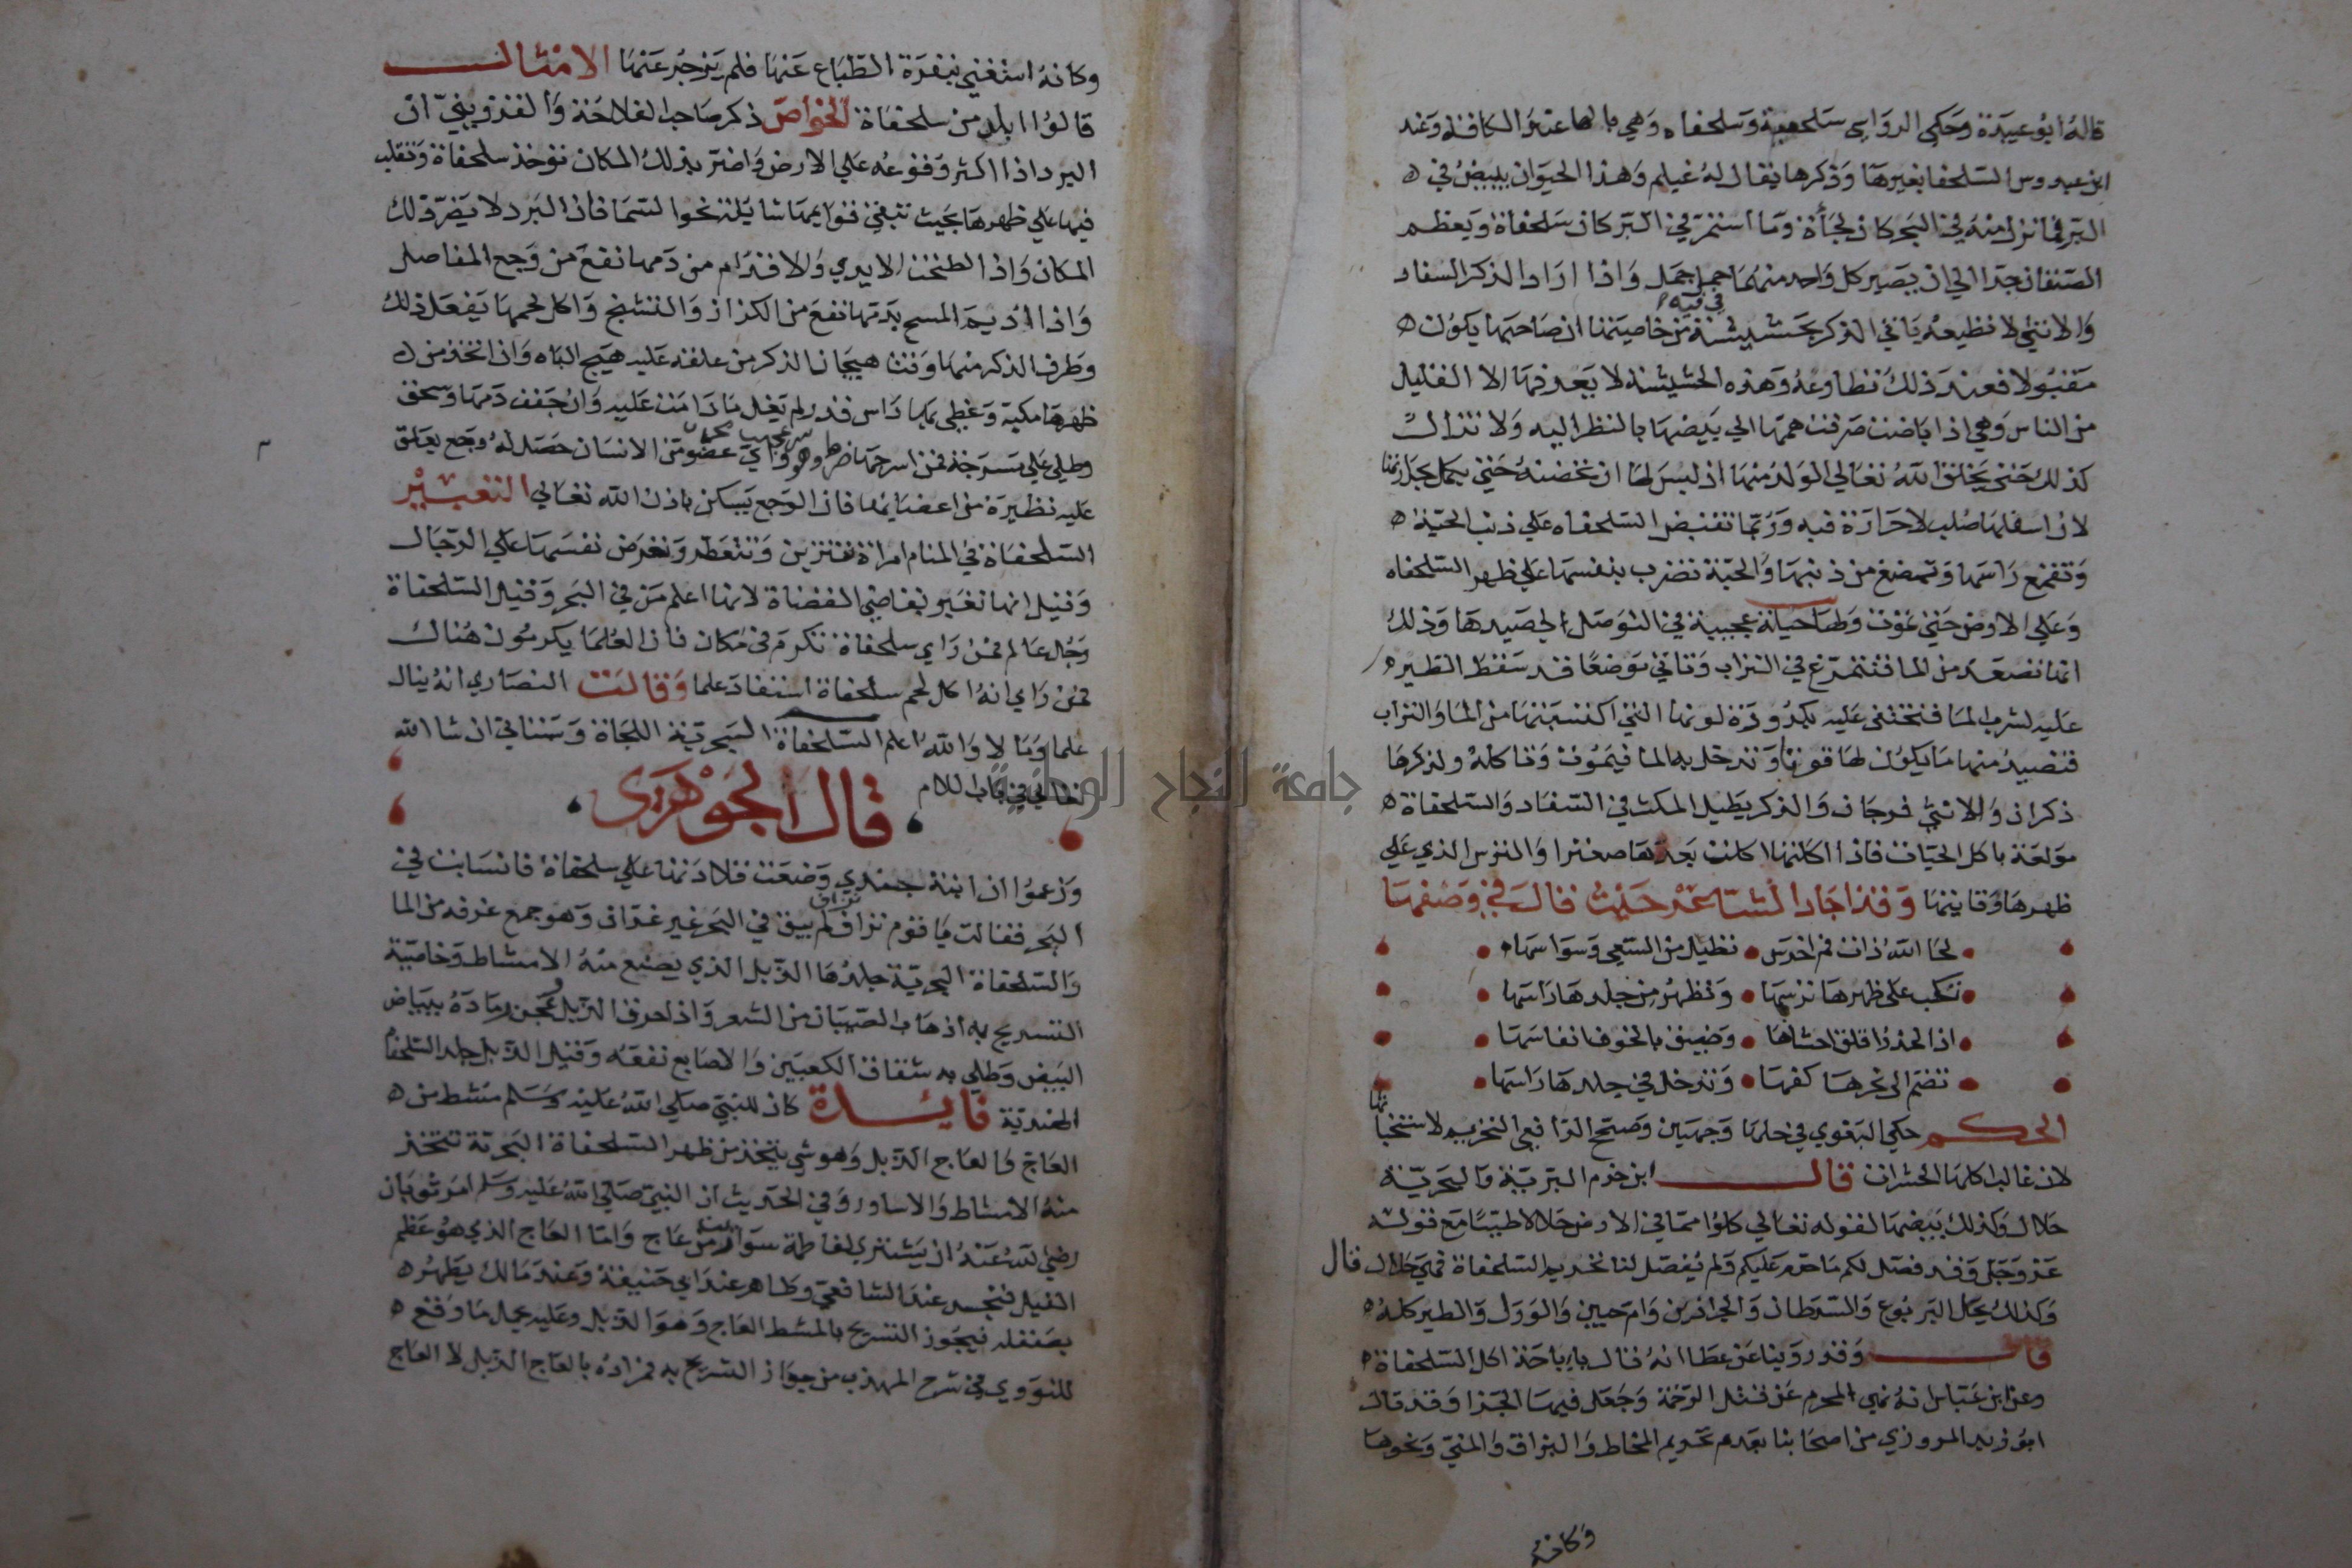 قاله ابو عبيدة وحكى الرواسي سلحفية وسلحفاه وهي بالهاء عند الكافة وعند
ابن عبدوس السلحفا بغيرها وذكرها يقال له غيلم وهذا الحيوان يبيض في
البر فما نزل منه في البحر كان لجأة وما استمر في البر كان سلحفاة ويعظم
الصنفان جدا الي ان يصير كل واحد منهما حمل جمل واذا اراد الذكر السفاد
والانثي لا تطيعه ياتي الذكر بحشيشة في فيه من خاصيتها ان صاحبها يكون
مقبولا فعند ذلك تطاوعه وهذه الحشيشة لا يعرفها الا القليل
من الناس وهي اذا باضت صرفت همتها الي بيضها بالنظر اليه ولا تزال
كذلك حتى يخلق الله تعالي الولد منها اذ ليس لها ان تحضنه حتي يكمل بحرارتها
لان اسفلها صلب لا حرارة فيه وربما تقبض السلحفاه علي ذنب الحية
وتقطع راسها وتمضغ من ذنبها والحية تضرب بنفسها علي ظهر السلحفاه
وعلي الارض حتي تموت ولها حيلة عجيبة في التوصل الي صيدها وذلك
انها تصعد من الما فتتمرغ في التراب وتاتي موضعا قد سقط الطير
عليه لشرب الما فتختفي عليه بكدورة لونها التي اكتسبتها من الما والتراب
فتصيد منها ما يكون لها قوتا وتدخل به الما فيموت وتاكله ولذكرها
ذكران وللانثي فرجان والذكر يطيل المكث في السفاد والسلحفاة
مولعة باكل الحيات فاذا اكلتها اكلت بعدها صعترا والترس الذي علي
ظهرها وقايتها وقد اجاد الشاعر حيث قال في وصفها
لحا الله ذات فم اخرس نطيل من السعي وسواسها
تكب على ظهرها ترسها وتظهر من جلدها راسها
اذا الحذر اقلق احشاها وضيق بالخوف انفاسها
تضم الى نحرها كفها وتدخل في جلدها راسها
الحكم حكي البغوي في حلها وجهين وصحح الرافعي التحريم لاستخباثها
لان غالب اكلها الحشرات قال ابن حزم البرية والبحرية
حلال وكذلك بيضها لقوله تعالي كلوا مما في الارض حلالا طيبا مع قوله
عز وجل وقد فصل لكم ما حرم عليكم ولم يفصل لنا تحريم السلحفاة فهي حلال قال
وكذلك يحل اليربوع والسرطان والجراذين وام حبين والورل والطير كله
قال وقد روينا عن عطا انه قال باباحة اكل السلحفاة
وعن ابن عباس انه نهي المحرم عن قتل الرخمة وجعل فيها الجزا وقد قال
ابو زيد المروزي من اصحابنا بعدم تحريم المخاط والبزاق والمني ونحوها
وكانه
وكانه استغني بنفرة الطباع عنها فلم يزجر عنها الامثال
قالوا ابلد من سلحفاة الخواص ذكر صاحب الفلاحة والقزويني ان
البرد اذا اكثر وقوعه علي الارض واضر بذلك المكان تؤخذ سلحفاة وتقلب
فيها علي ظهرها بحيث تبقي قوايمها شايلة نحو السما فان البرد لا يضر ذلك
المكان واذا لطخت الايدي والاقدام من دمها نفع من وجع المفاصل
واذا اديم المسح بدمها نفع من الكزاز والتشنج واكل لحمها يفعل ذلك
وطرف الذكر منها وقت هيجان الذكر من علقه عليه هيج الباه واذا اتخذ من
ظهرها مكبة وغطي بها راس قدر لم يغل ما دامت عليه وان جفف دمها وسحق
وطلي علي مسرجة فمن اسرجها ضرط وهو سر عجيب مجرب واي عضو من الانسان حصل له وجع يعلق
عليه نظيره من اعضايها فان الوجع يسكن باذن الله تعالي التعبير
السلحفاة في المنام امراة تتزين وتتعطر وتعرض نفسها علي الرجال
وقيل انها تعبر بقاضي القضاة لانها اعلم من في البحر وقيل السلحفاة
رجل عالم فمن راي سلحفاة تكرم في مكان فان العلما يكرمون هناك
فمن راي انه اكل لحم سلحفاة استفاد علما وقالت النصاري انه ينال
علما ومالا والله اعلم السلحفاة البحرية اللجاة وستاتي ان شا الله
تعالي في باب اللام قال الجوهري
وزعموا ان ابنة جندي وضعت قلادتها علي سلحفاة فانسابت في
البحر فقالت يا قوم نزاف نزاف لم يبق في البحر غير غراف وهو جمع غرفه من الما
والسلحفاة البحرية جلدها الذبل الذي يصنع منه الامشاط وخاصية
التسريح به اذهاب الصيبان من الشعر واذا حرق الذبل وعجن رماده ببياض
البيض وطلي به شقاق الكعبين والاصابع نفعه وقيل الذبل جلد السلحفا
الهندية فايدة كان للنبي صلي الله عليه وسلم مشط من
العاج والعاج الذبل وهو شي يتخذ من ظهر السلحفاة البحرية تتخذ
منه الامشاط والاساور وفي الحديث ان النبي صلي الله عليه وسلم امر ثوبان
رضي الله عنه ان يشتري لفاطمة سوارين من عاج واما العاج الذي هو عظم
الفيل فنجس عند الشافعي وطاهر عند ابي حنيفة وعند مالك يطهر
بصقله فيجوز التسريح بالمشط العاج وهو الذبل وعليه يحمل ما وقع
للنووي في شرح المهذب من جواز التسريح به فمراده بالعاج الذبل لا العاج
جامعة النجاح الوطنية